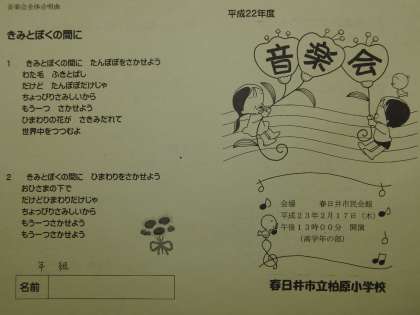 音楽会全体合唱曲
きみとぼくの間に
1 きみとぼくの間に たんぽぽをさかせよう
わた毛 ふきとばし
だけど たんぽぽだけじゃ
ちょっぴりさみしいから
もう一つ さかせよう
ひまわりの花が さきみだれて
世界中をつつむよ
2 きみとぼくの間に ひまわりをさかせよう
おひさまの下で
だけどひまわりだけじゃ
ちょっぴりさみしいから
もう一つさかせよう
もう一つさかせよう
年 組
名前
平成22年度
音楽会
会場 春日井市民会館
平成23年2月17日(木)
午後13時00分 開演
(高学年の部)
春日井市立柏原小学校